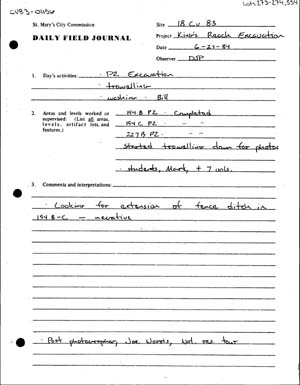 CV83-01156
Lots 273-274, 554
St. Mary's City Commission
Site 18 Cv 83
DAILY FIELD JOURNAL
Project King's Reach Excavation
Date 6-27-84
Observer DJP
1. Day's activities: · PZ Excavation
· trowelling
· washing · Bill
2. Areas and levels worked or supervised: (List all areas, levels, artifact lots, and features.)
194 B PZ - Completed
194 C PZ " "
227 B PZ " "
· Started trowelling down for photos
· students, Mark, + 7 vols.
3. Comments and interpretations:
· Looking for extension of fence ditch in
194 B-C — negative
· Post photographer, Joe